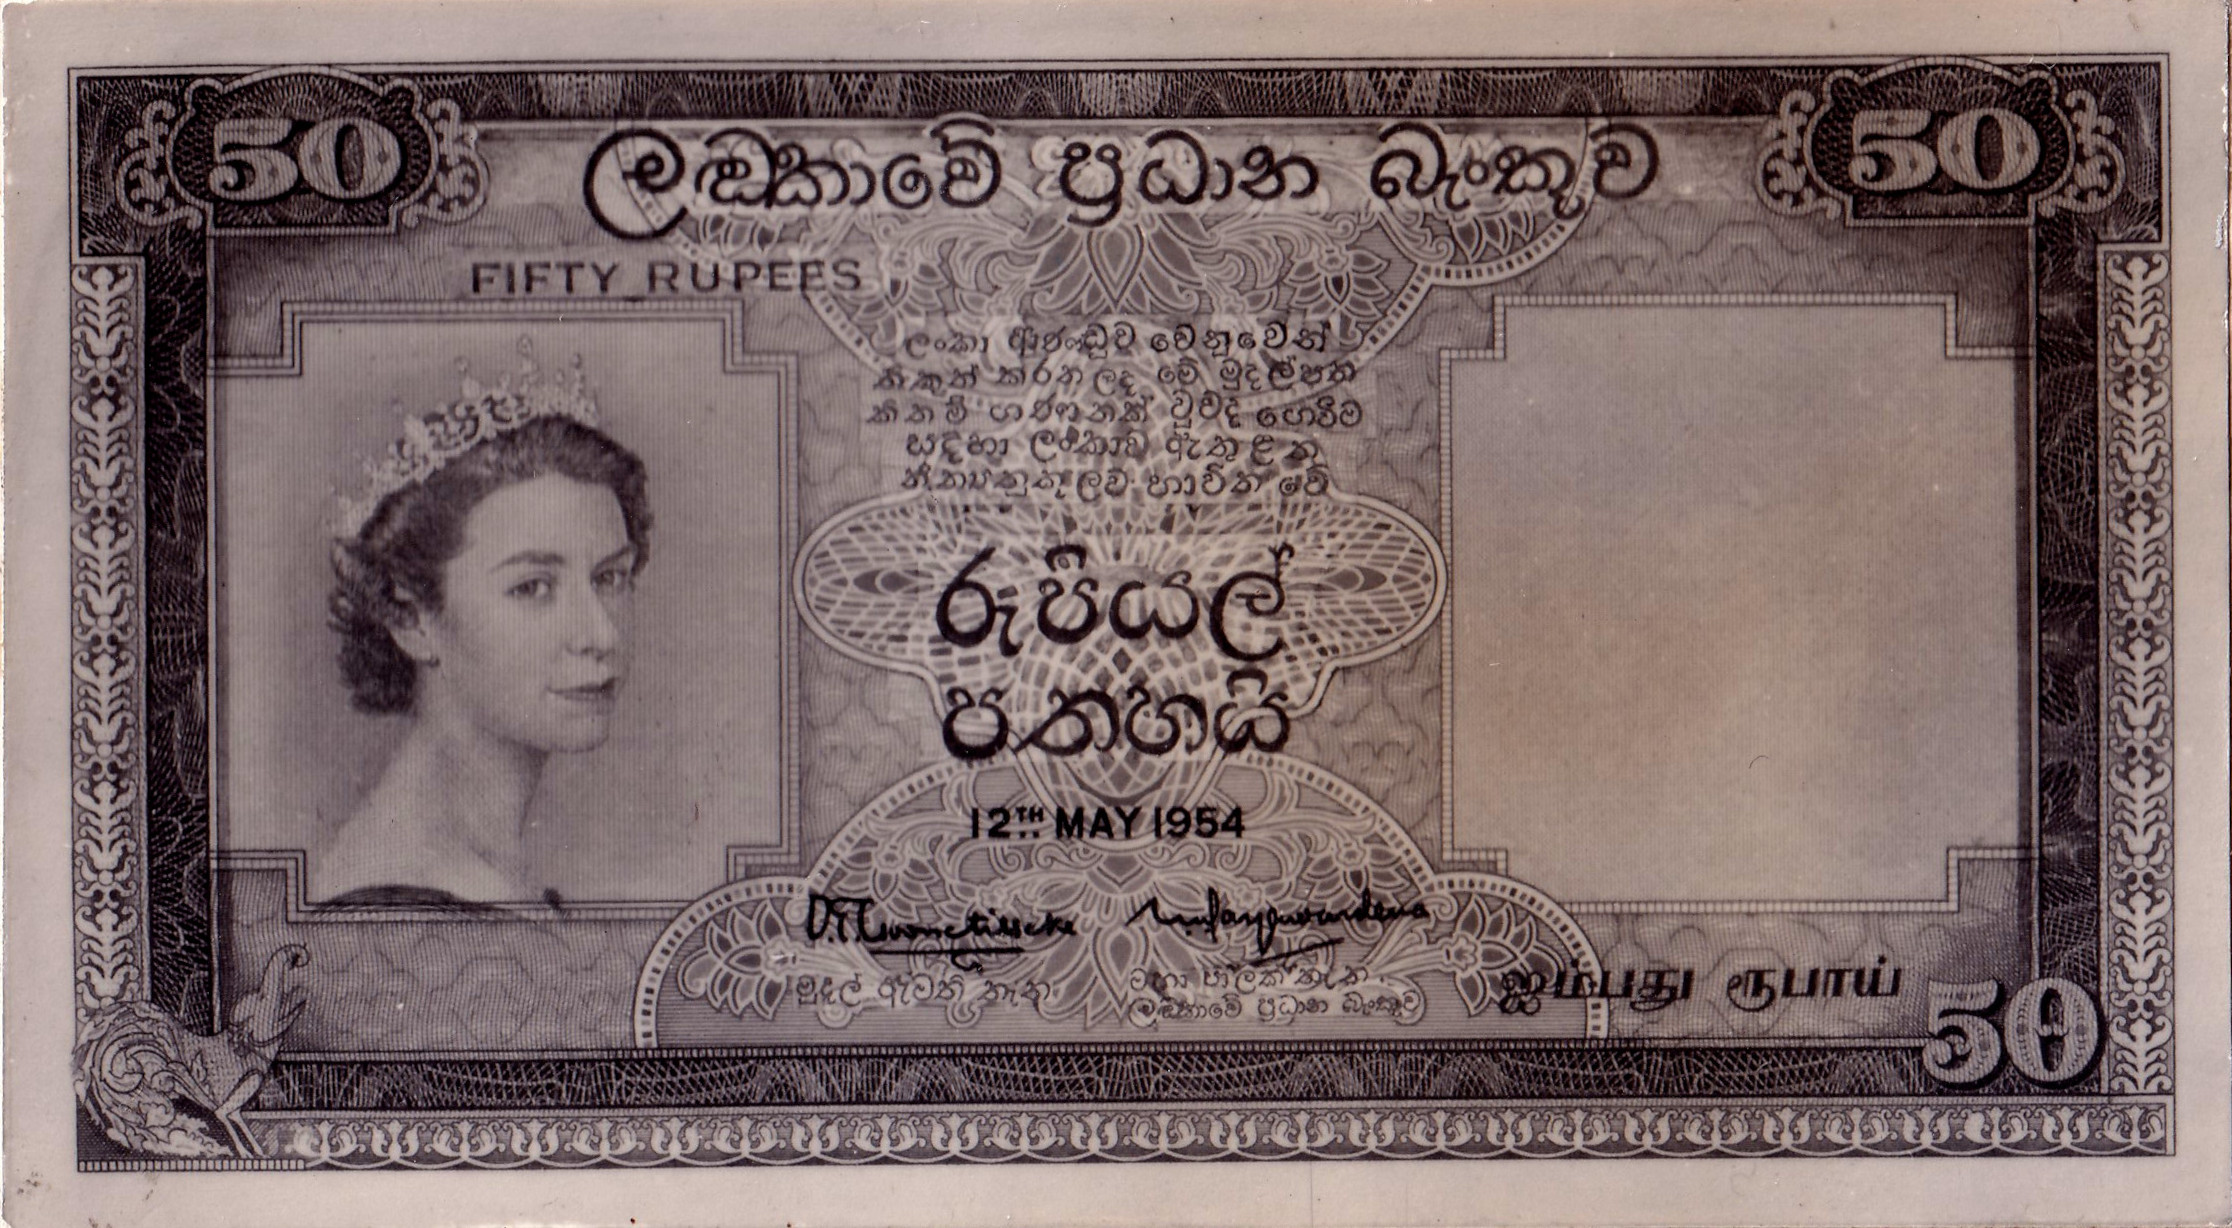 50
ලඞ්කාවේ ප්‍රධාන බැංකුව
50
FIFTY RUPEES
ලංකා ආණ්ඩුව වෙනුවෙන්
නිකුත් කරන ලද මේ මුදල්පත
කිනම් ගණනක් වුවද ගෙවීම
සඳහා ලංකාව ඇතුළත
නීත්‍යනුකූලව භාවිත වේ
රුපියල්
පනහයි
12TH MAY 1954
මුදල් ඇමති තැන
ලඞ්කාවේ ප්‍රධාන බැංකුව
ஐம்பது ரூபாய்
50